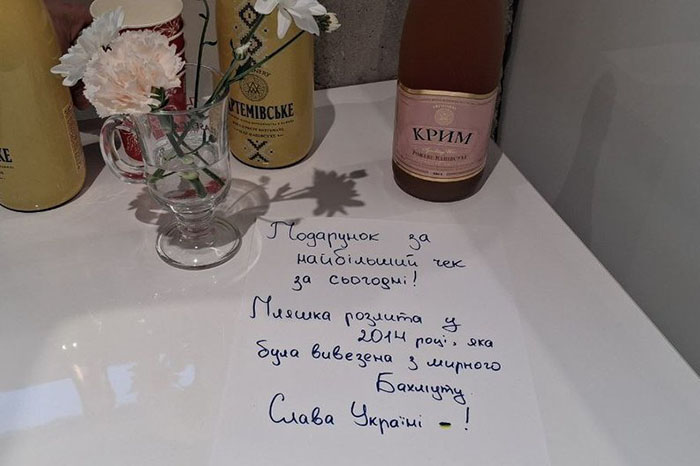 АРТЕМІВСЬКЕ
КРИМ
Подарунок за
найбільший чек
за сьогодні!
Пляшка розлита у
2014 році, яка
була вивезена з мирного
Бахмуту
Слава Україні - !